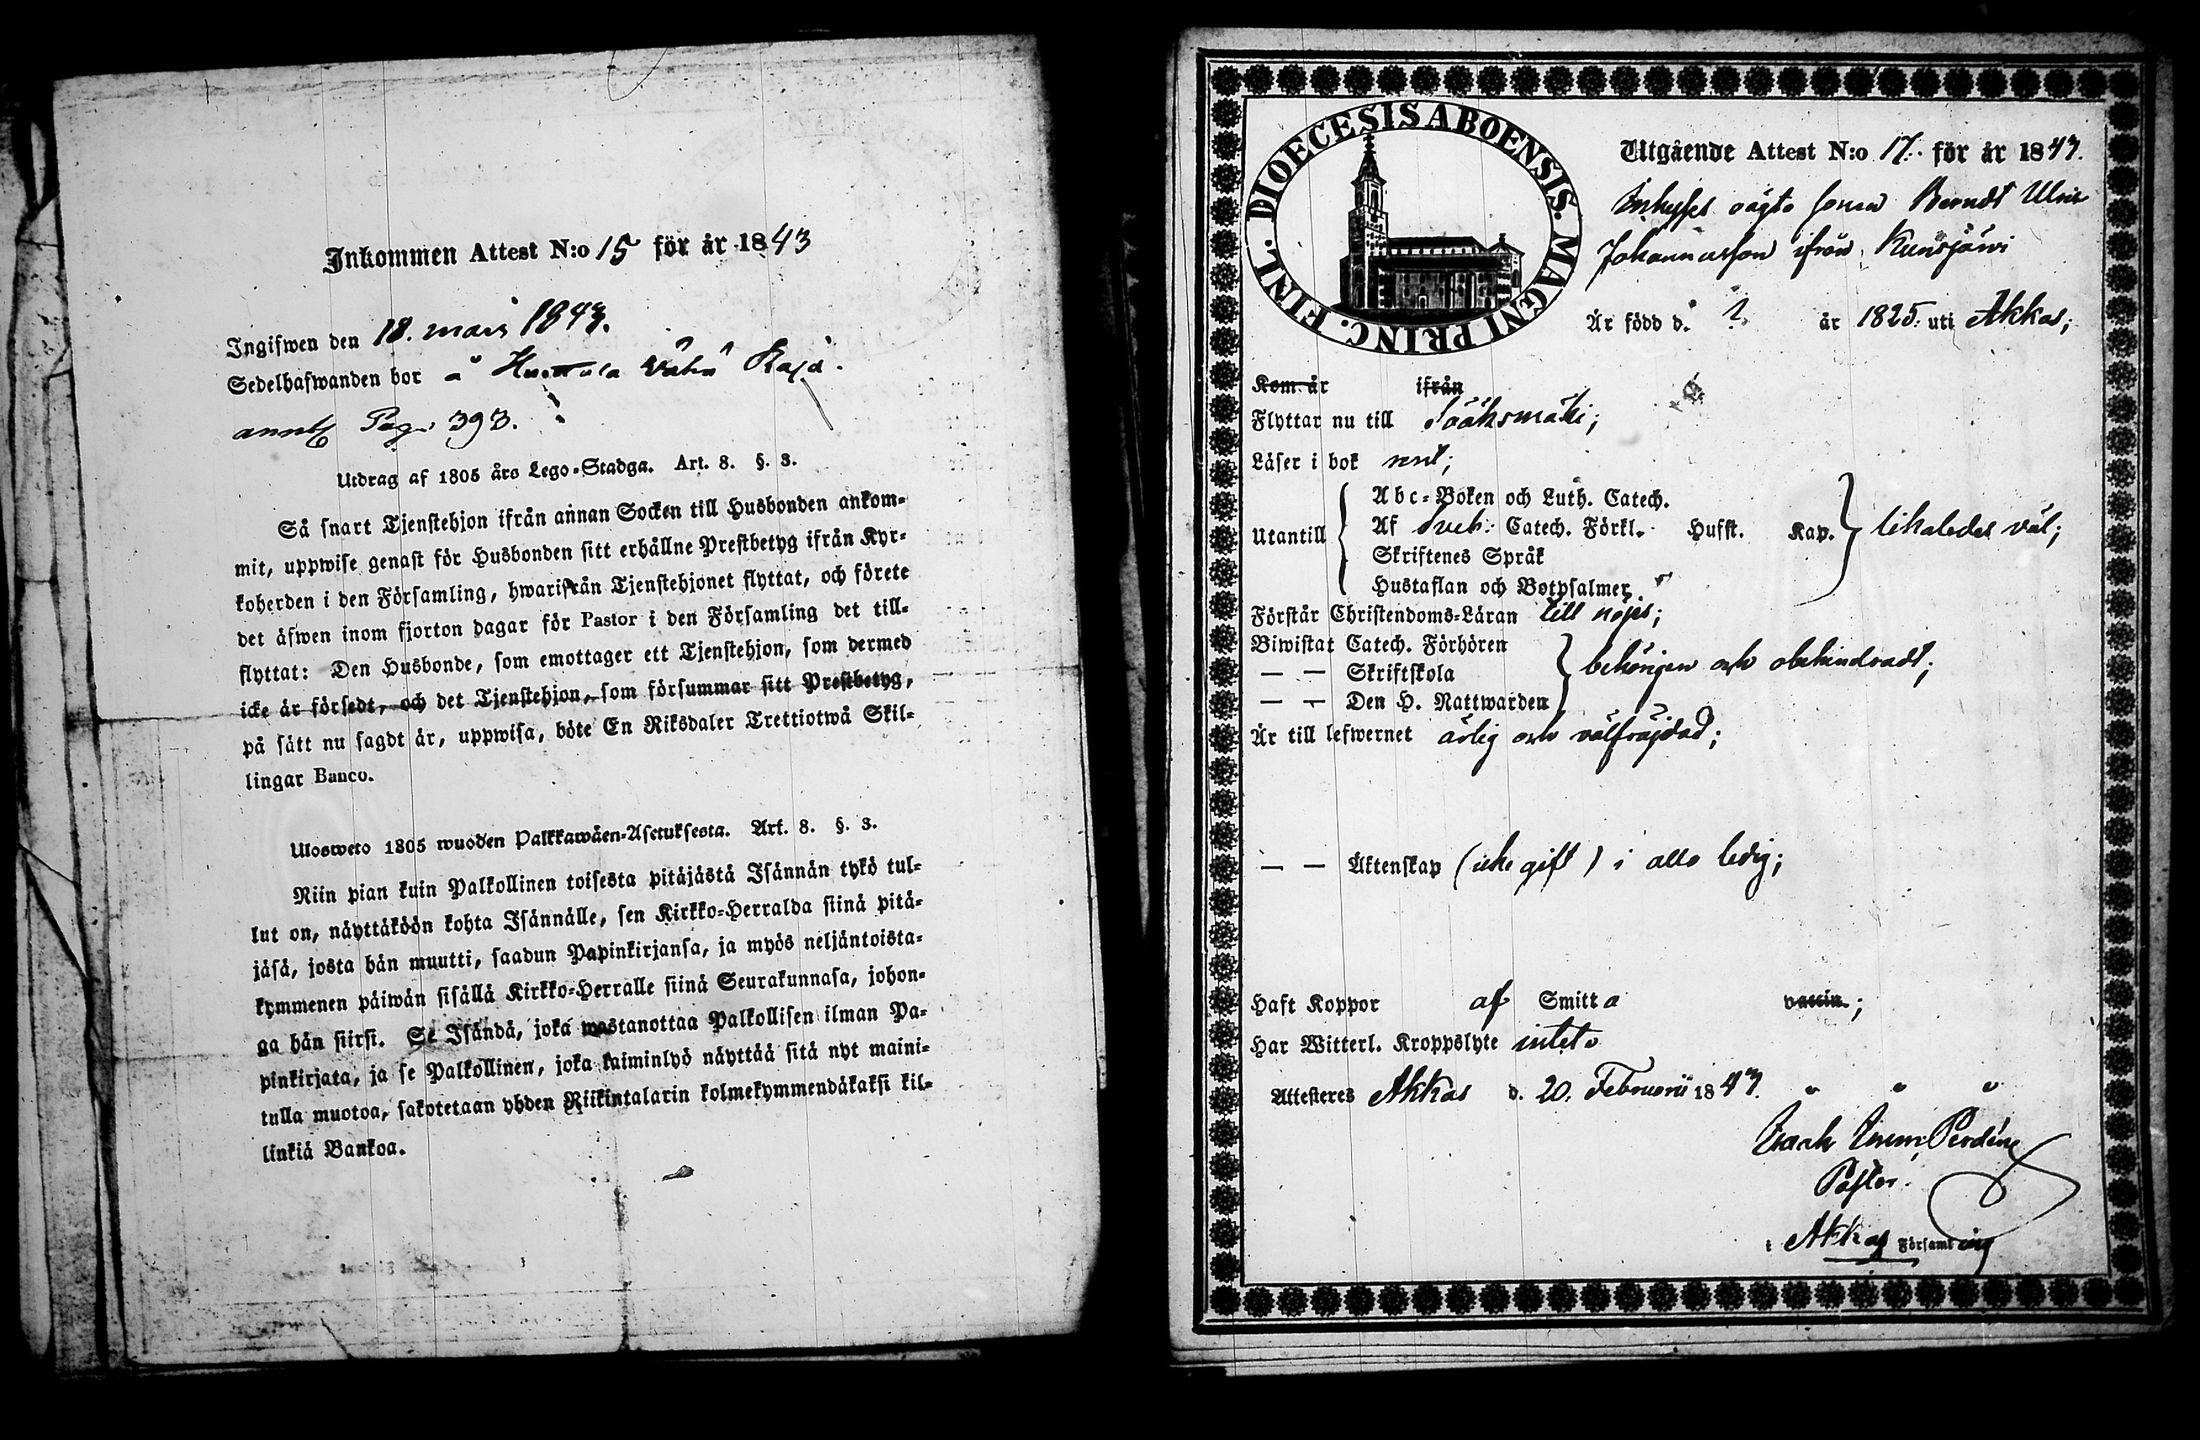 Inkommen Attest N:o 15 för år 1843
Ingifwen den 18. mars 1843.
Sedelhafwanden bor å Wähä Raja.
Pag. 393.
Utdrag af 1805 års Lego-Stadga. Art. 8. §. 3.
Så snart Tjenstehjon ifrån annan Socken till Husbonden ankom-
mit, uppwise genast för Husbonden sitt erhållne Prestbetyg ifrån Kyr-
koherden i den Församling, hwarifrån Tjenstehjonet flyttat, och förete
det äfwen inom fjorton dagar för Pastor i den Församling det till-
flyttat: Den Husbonde, som emottager ett Tjenstehjon, som dermed
icke är försedt, och det Tjenstehjon, som försummar sitt Prestbetyg,
på sätt nu sagdt är, uppwisa, böte En Riksdaler Trettiotwå Skil-
lingar Banco.
Ulosweto 1805 wuoden Palkkawäen-Asetuksesta. Art. 8. §. 3.
Niin pian kuin Palkollinen toisesta pitäjästä Isännän tykö tul-
lut on, näyttäköön kohta Isännälle, sen Kirkko-Herralda siinä pitä-
jäsä, josta hän muutti, saadun Papinkirjansa, ja myös neljäntoista-
kymmenen päiwän sisällä Kirkko-Herralle siinä Seurakunnasa, johon-
ga hän siirsi. Se Isändä, joka wastanottaa Palkollisen ilman Pa-
pinkirjata, ja se Palkollinen, joka laiminlyö näyttää sitä nyt maini-
tulla muotoa, sakotetaan yhden Riikintalarin kolmekymmendäkaksi kil-
linkiä Bankoa.
DIOECESIS ABOENSIS. MAGNI PRINC. FINL.
Utgående Attest N:o 17. för år 1843.
Inhyses oägta sonen Berndt
Johannesson ifrån Kurisjärwi
Är född d. ? år 1825. uti Akkas;
Kom år ifrån
Flyttar nu till Sääksmäki;
Läser i bok rent;
Utantill
Abc-Boken och Luth. Catech.
Af Sveb. Catech. Förkl. Husst. Kap.
Skriftenes Språk
Hustaflan och Botpsalmer.
likaledes väl;
Förstår Christendoms-Läran till nöjes;
Biwistat Catech. Förhören
— — Skriftskola
— — Den H. Nattwarden
behörigen och obehindradt;
Är till lefwernet ärlig och välfräjdad;
— — Äktenskap (icke gift) i allo ledig;
Haft Koppor af Smitta vaccin.;
Har Witterl. Kroppslyte intet.
Attesteres Akkas d. 20. Februarii 1843.
Isach Emm.
Pastor.
i Akkas Församling